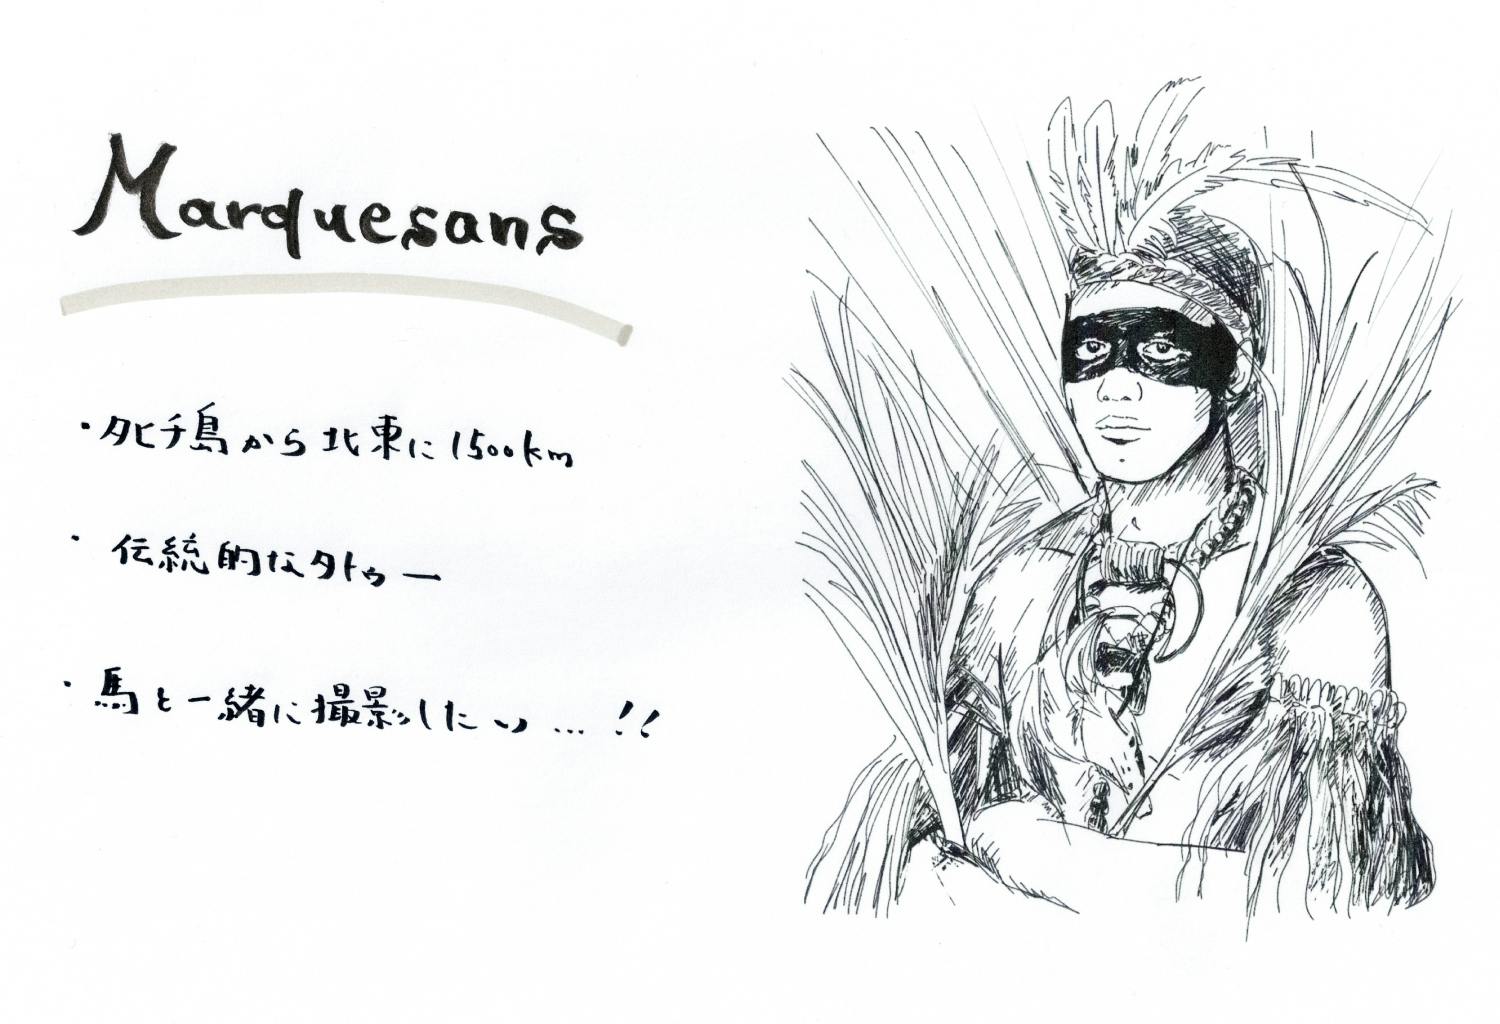 Marquesans
・タヒチ島から北東に1500km
・伝統的なタトゥー
・馬と一緒に撮影したい…!!